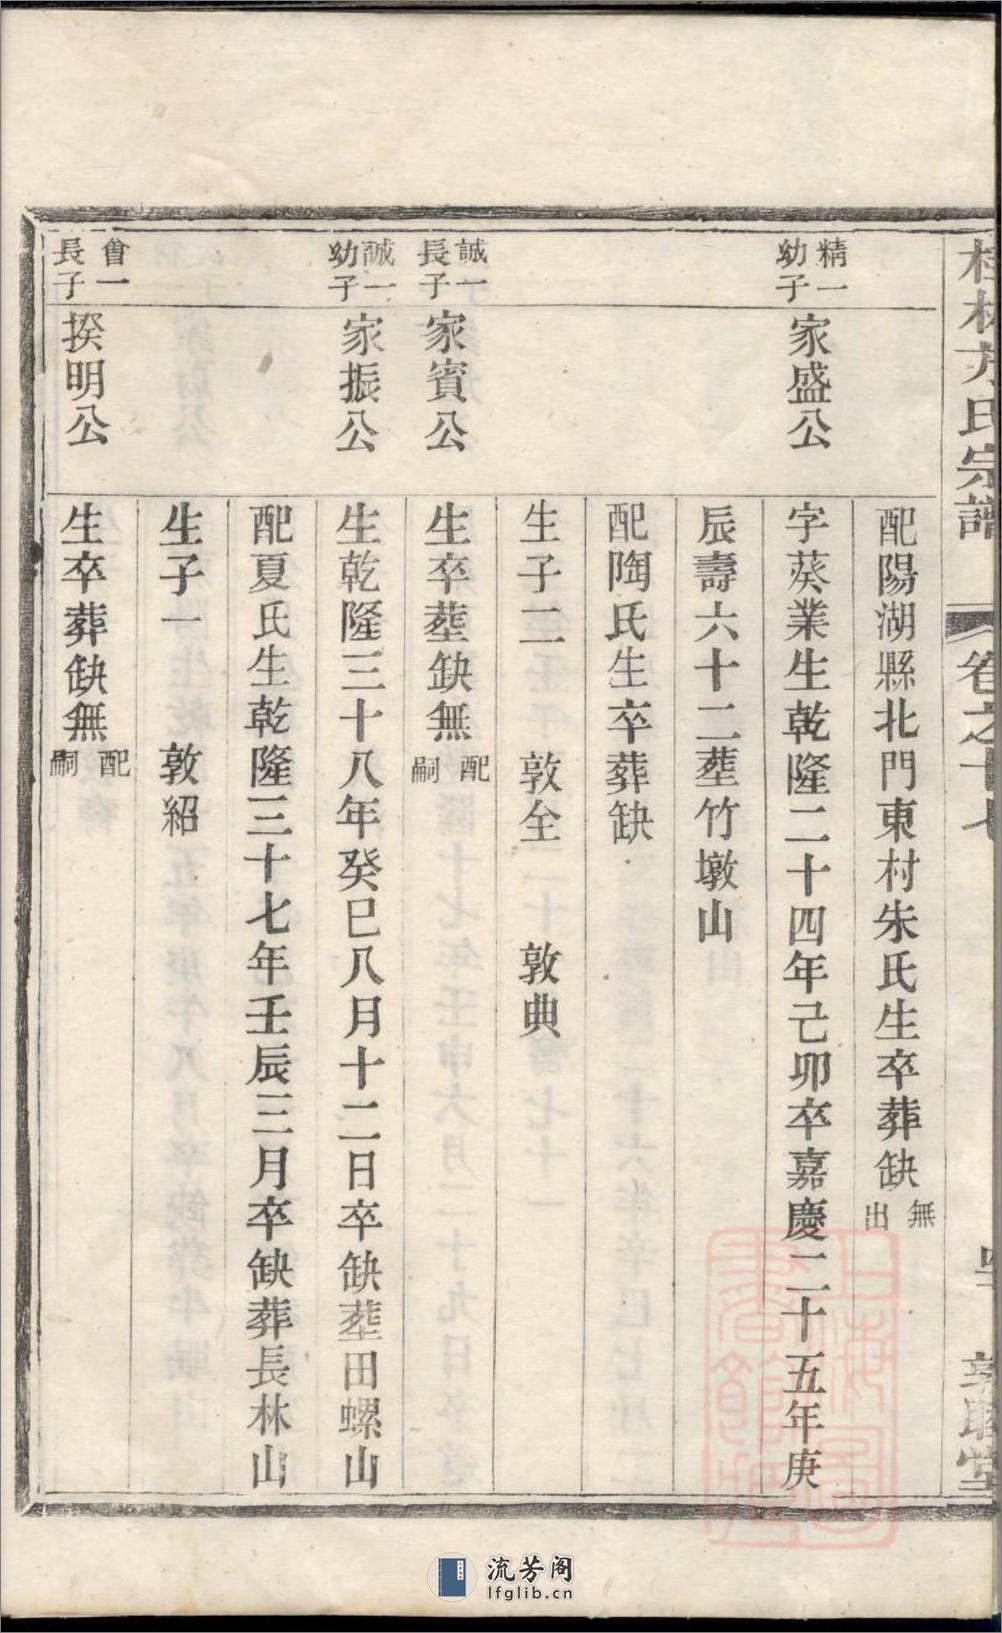 氏宗譜
卷之十七
配陽湖縣北門東村朱氏生卒葬缺無出
精一幼子
家盛公
字葵業生乾隆二十四年己卯卒嘉慶二十五年庚
辰壽六十二塟竹墩山
配陶氏生卒葬缺
生子二 敦全 敦典
誠一長子
家賓公
生卒塟缺無配嗣
誠一幼子
家振公
生乾隆三十八年癸巳八月十二日卒缺塟田螺山
配夏氏生乾隆三十七年壬辰三月卒缺葬長林山
生子一 敦紹
會一長子
揆明公
生卒葬缺無配嗣
流芳阁
lfglib.cn